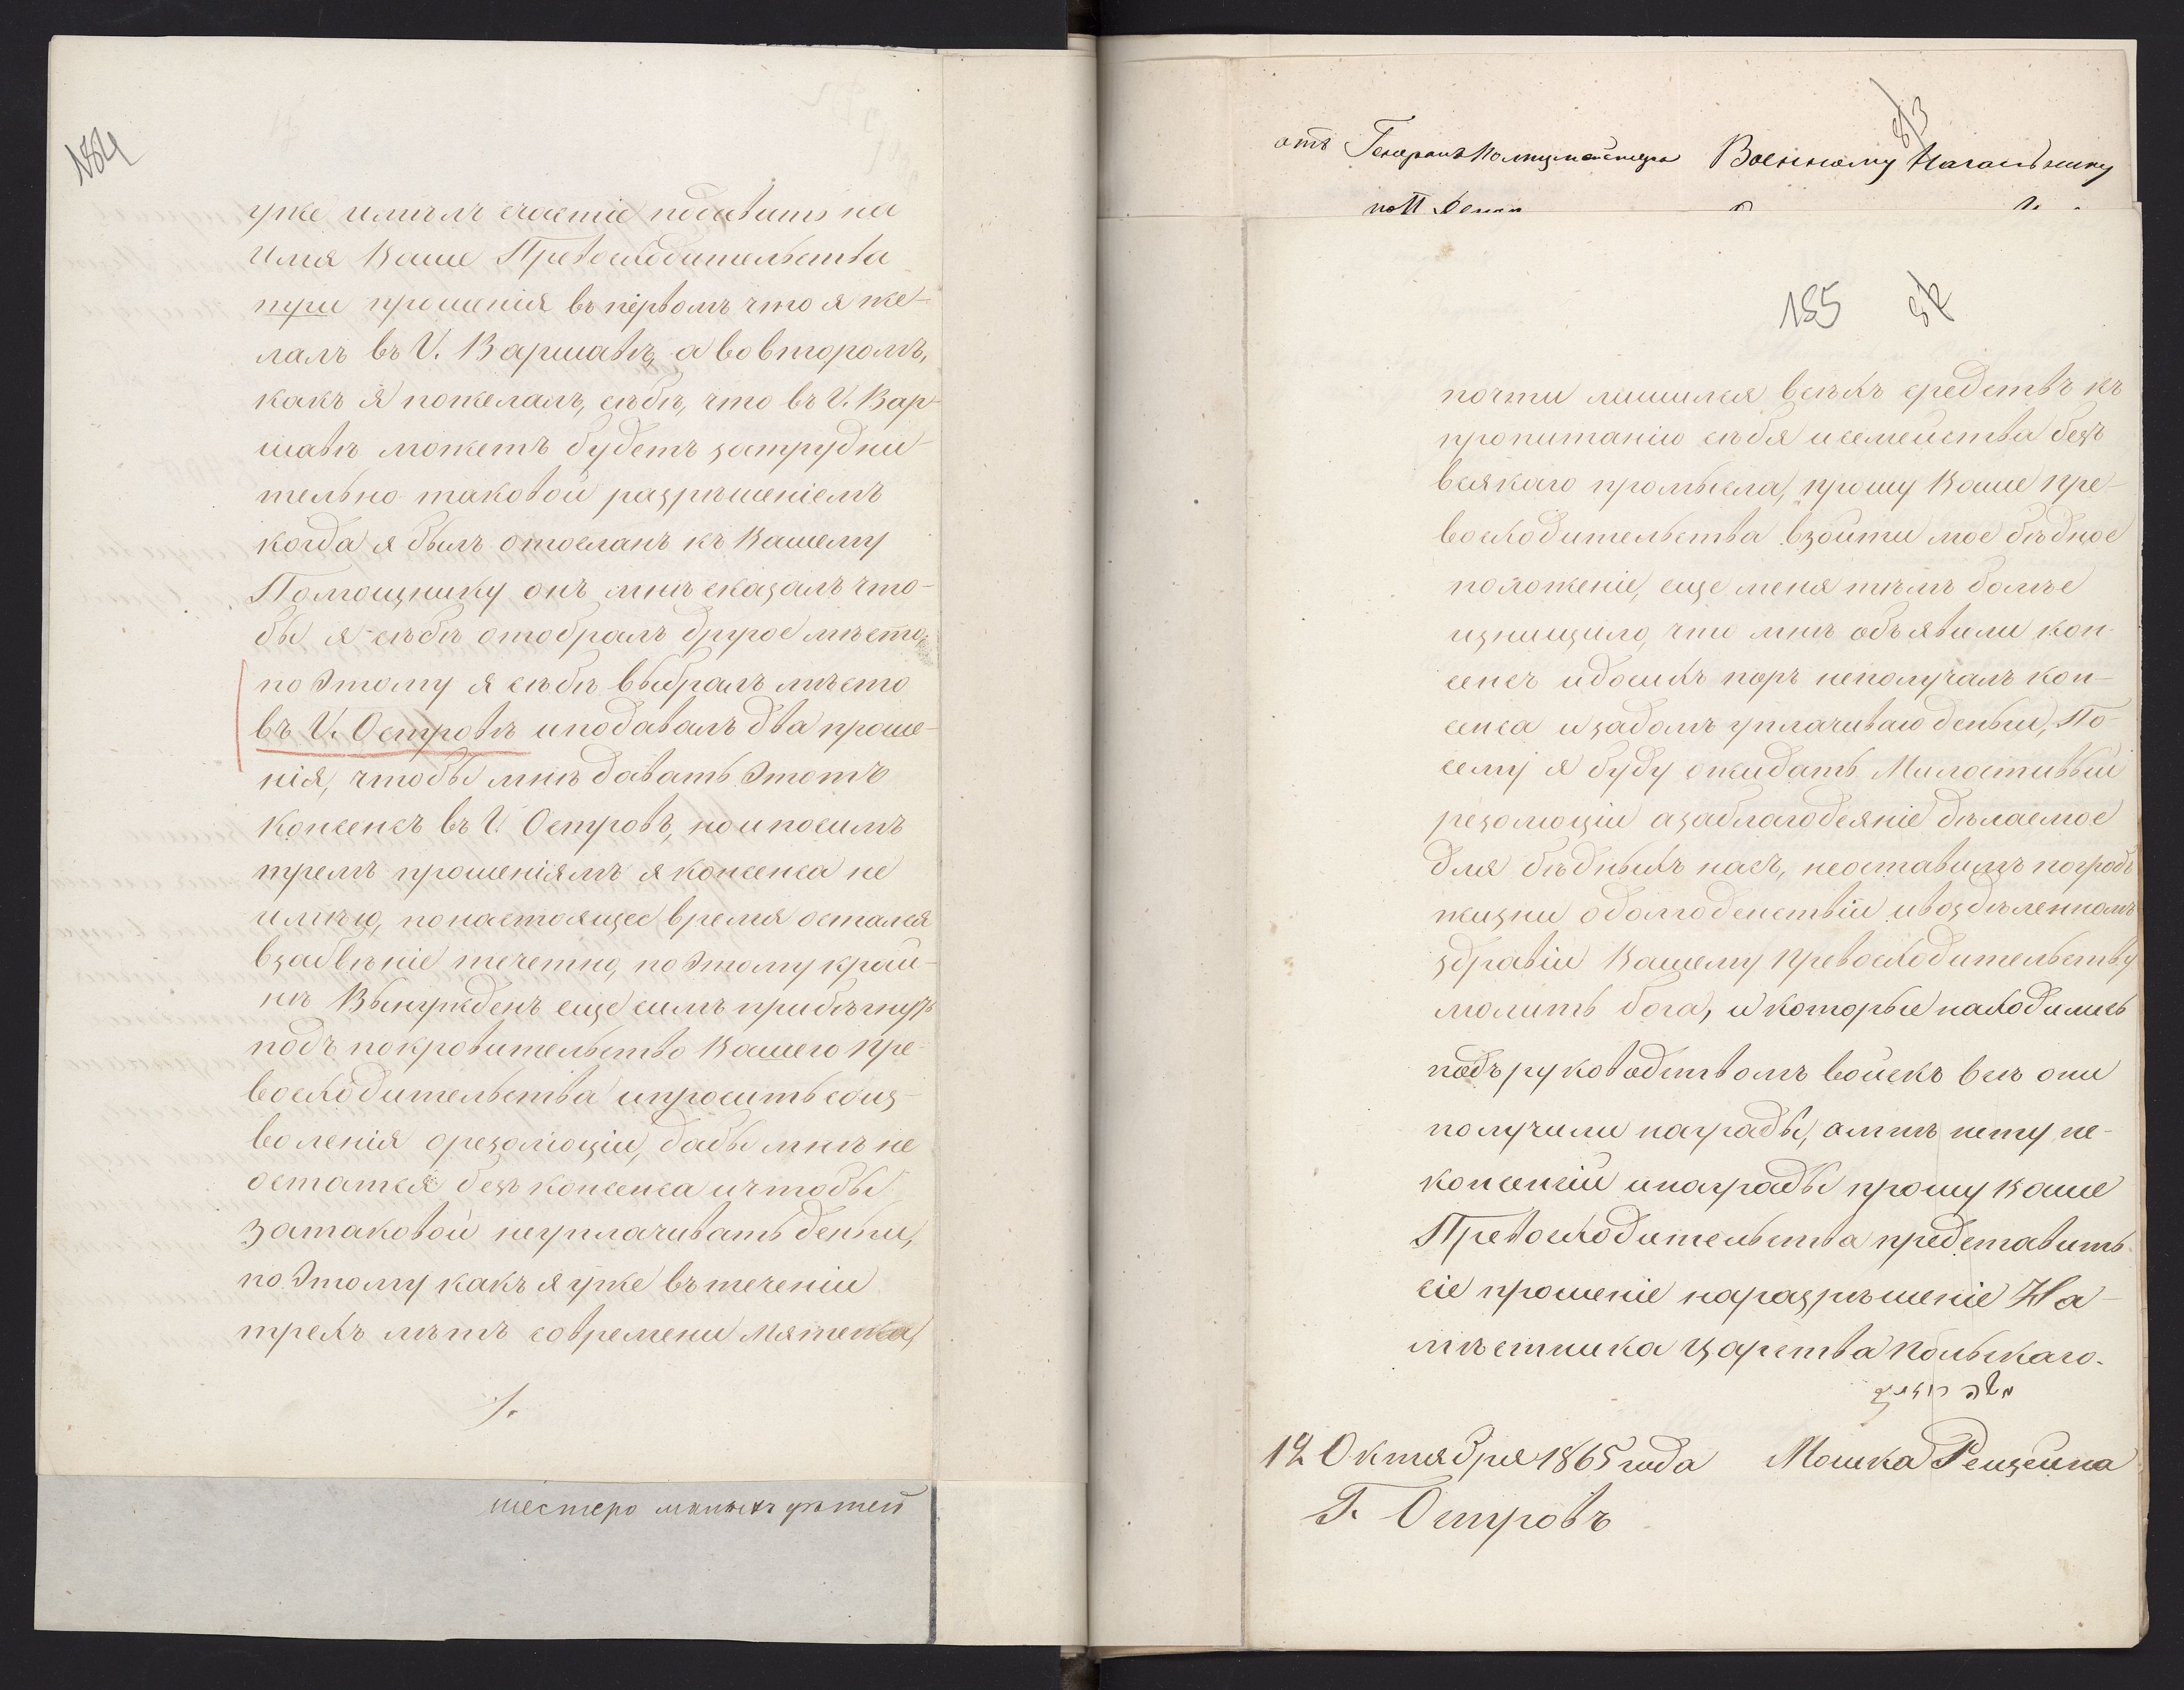 184
уже имѣлъ счастіе подавать на
Имя Ваше Превосходительства
три прошенія въ первомъ что я же-
лалъ въ Г. Варшавѣ, а во второмъ,
какъ я пожелалъ, сѣбѣ, что въ Г. Вар-
шавѣ можетъ будетъ затрудни-
тельно таковой разрѣшеніемъ
когда я былъ отосланъ къ Вашему
Помощнику онъ мнѣ сказалъ что-
бы я сѣбѣ отобралъ другое мѣсто,
по этому я сѣбѣ выбралъ мѣсто
въ Г. Островѣ и подавалъ два проше-
нія, чтобы мнѣ давать этотъ
консенсъ въ Г. Островѣ, но и по симъ
тремъ прошеніямъ я консенса не
имѣю, по настоящее время остался
в забвѣніе тщетно, по этому край-
нѣ Вынужденъ еще симъ прибѣгнуть
подъ покровительство Вашего Пре-
восходительства и просить соиз-
воленія о резолюціи, дабы мнѣ не
остатся безъ консенса и чтобы
за таковой не уплачивать деньги,
по этому какъ я уже въ теченіи
трехъ лѣтъ со времени мятежа,
/.
шестеро малыхъ дѣтей
813
отъ Генералъ Полицмейстера Военному Начальнику
185
почти лишился всѣхъ средствъ къ
пропитанію сѣбя и семейства безъ
всякаго промысла, прошу Ваше Пре-
восходительства взойти мое бѣдное
положеніе, еще меня тѣмъ более
изнищило, что мнѣ объявили кон-
сенсъ и до сихъ поръ не получалъ кон-
сенса и задомъ уплачиваю деньги, По-
сему я буду ожидать Милостивый
резолюціи а за благодеяніе дѣлаемое
для бѣдныхъ насъ, не оставимъ по гробъ
жизни о долгоденствіи и вождѣленномъ
здравіи Вашему Превосходительству
молить бога, и которые находились
подъ руководствомъ войскъ всѣ они
получили награды, а мнѣ нету не-
консенсіи и награды прошу Ваше
Превосходительства представить
сіе прошеніе на разрѣшеніе На-
мѣстника Царства Польскаго.
משה
12 Октября 1865 года Мошка
Г. Островъ